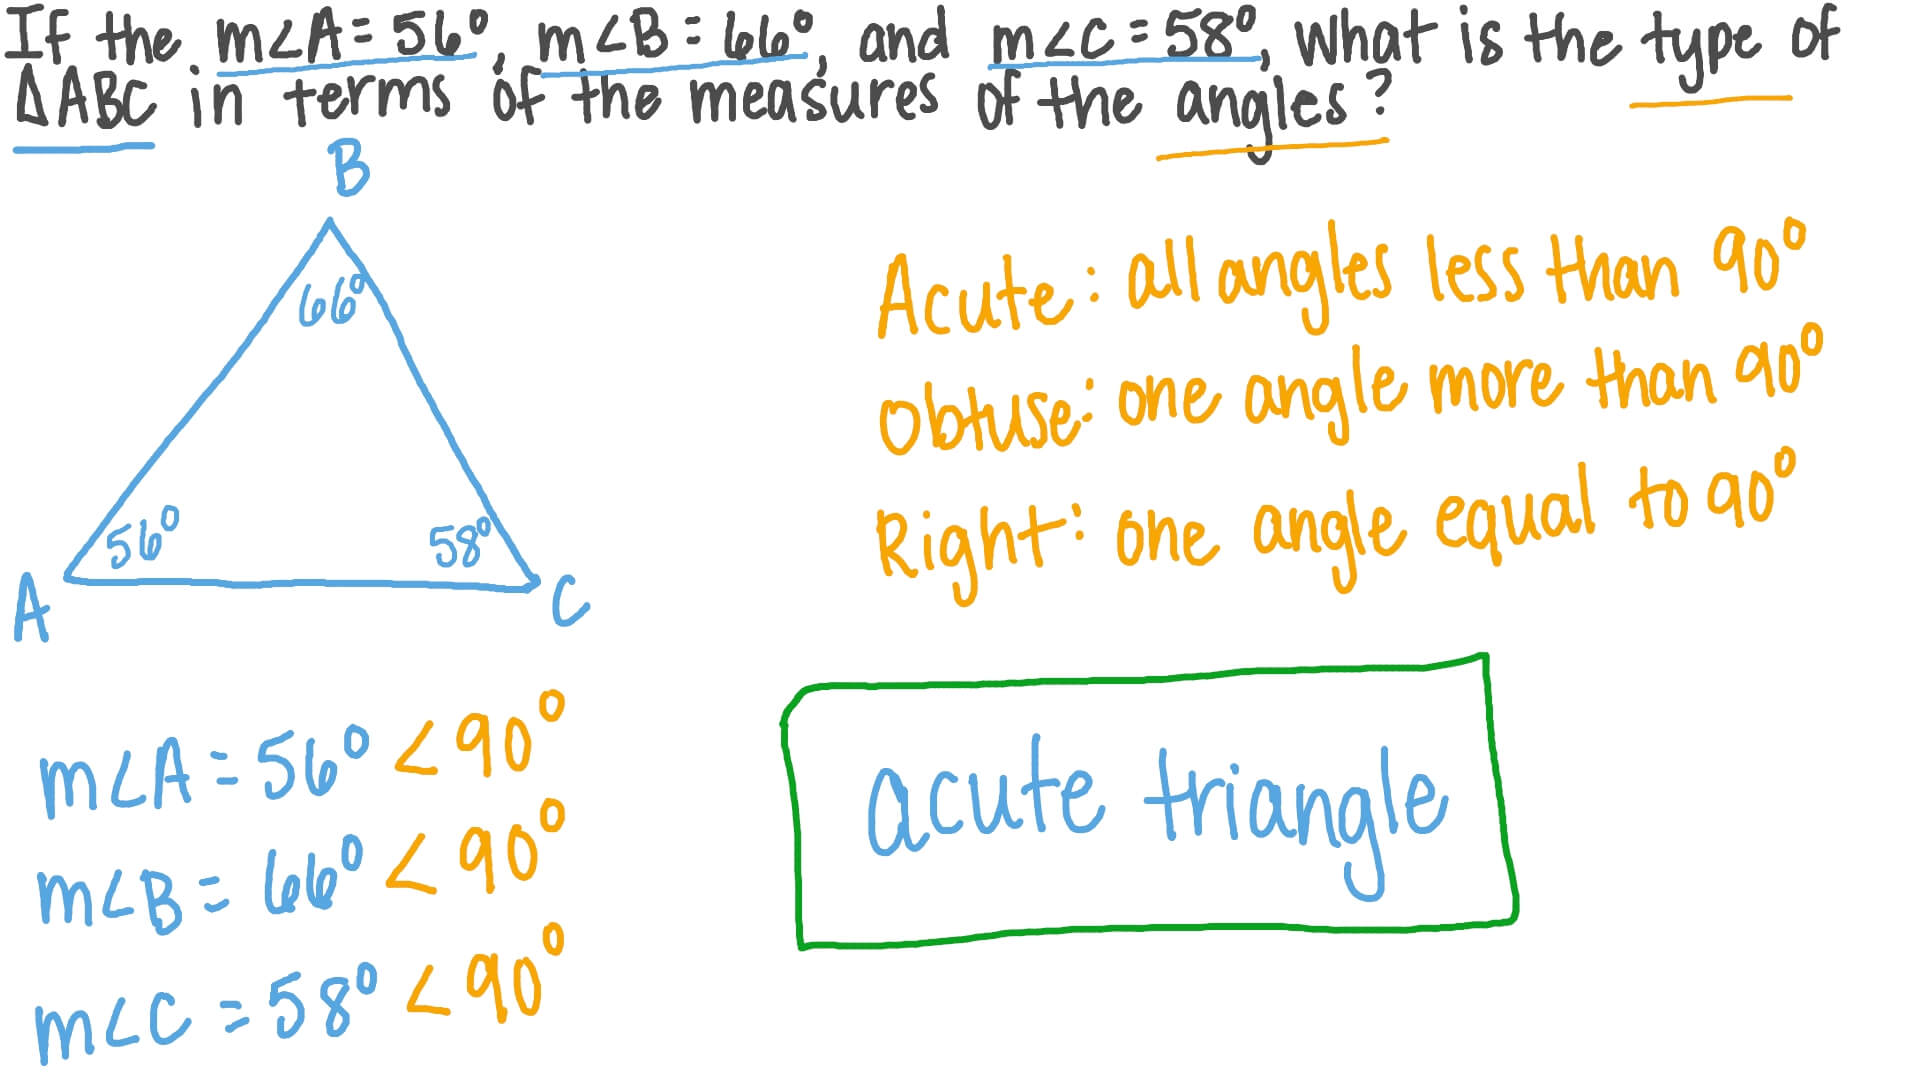 If the m∠A = 56°, m∠B = 66°, and m∠C = 58°, what is the type of
△ABC in terms of the measures of the angles?
B
66°
56°
58°
A
C
Acute: all angles less than 90°
Obtuse: one angle more than 90°
Right: one angle equal to 90°
m∠A = 56° < 90°
m∠B = 66° < 90°
m∠C = 58° < 90°
acute triangle